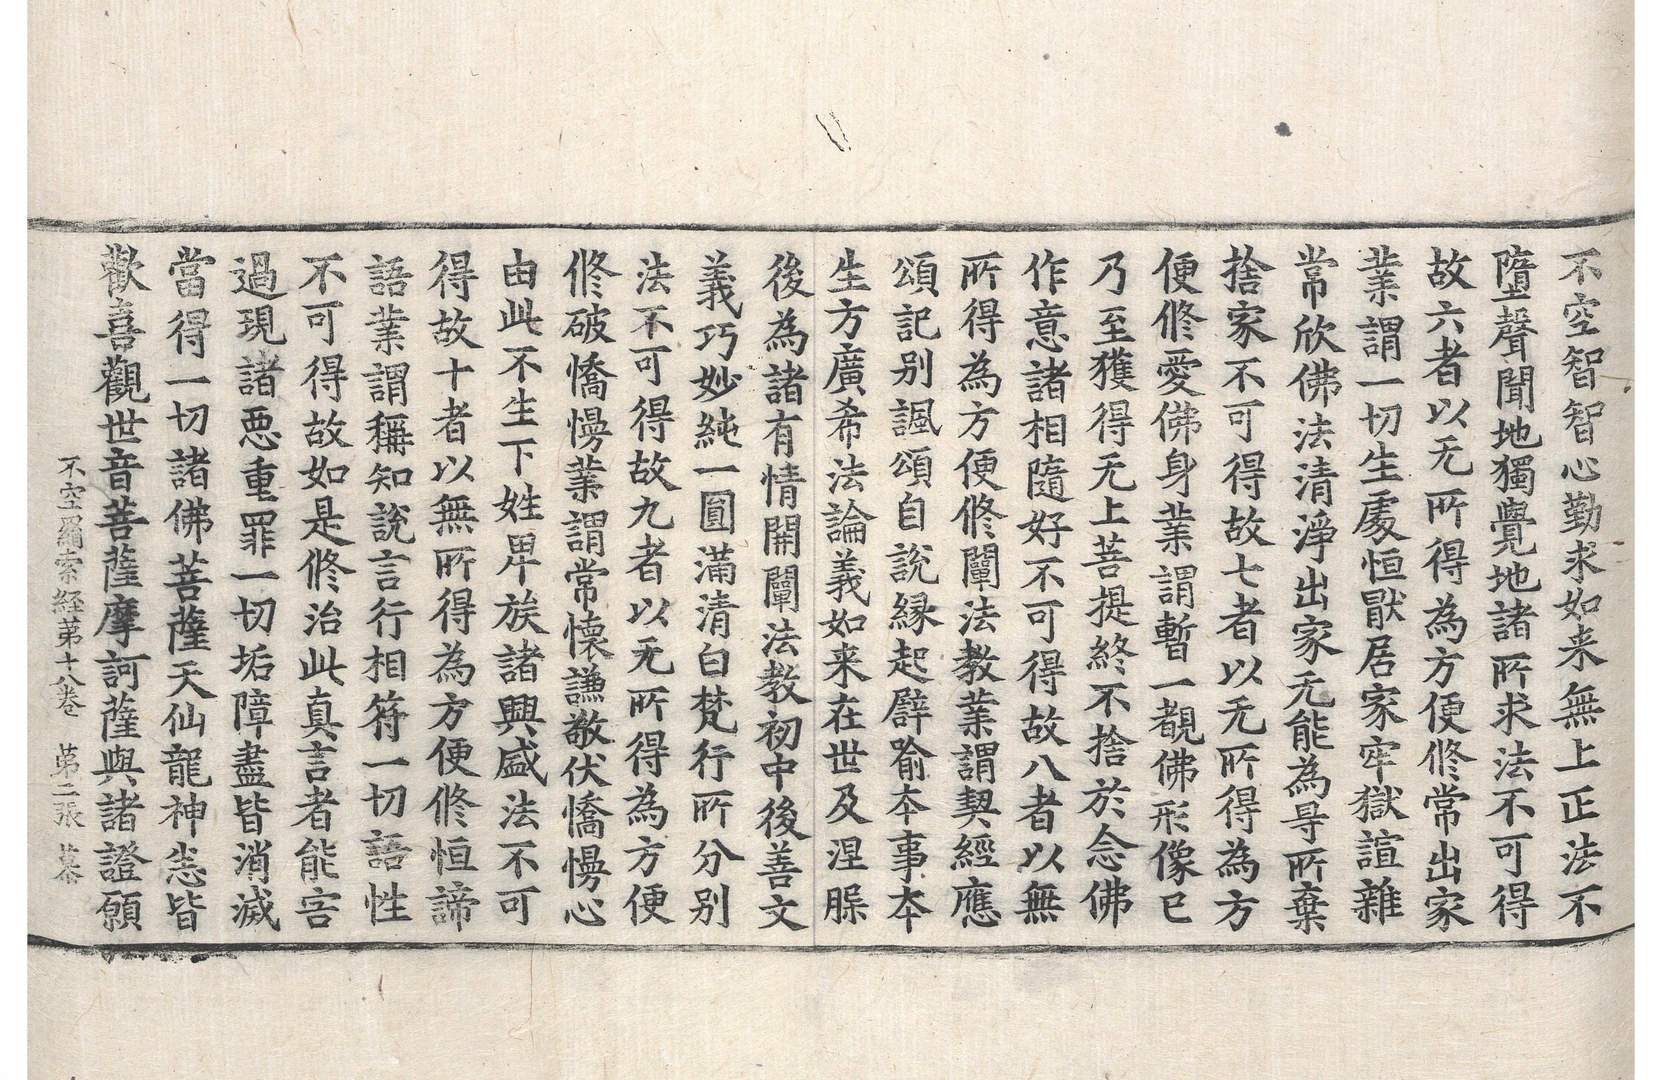 不空智智心勤求如来無上正法不
墮聲聞地獨覺地諸所求法不可得
故六者以无所得為方便修常出家
業謂一切生處恒猒居家牢獄諠雜
常欣佛法清淨出家无能為㝵所棄
捨家不可得故七者以无所得為方
便修愛佛身業謂暫一覩佛形像已
乃至獲得无上菩提終不捨於念佛
作意諸相隨好不可得故八者以無
所得為方便修闡法教業謂契經應
頌記别諷頌自說縁起譬喻夲事夲
生方廣希法論義如来在世及涅槃
後為諸有情開闡法教初中後善文
義巧妙純一圓滿清白梵行所分别
法不可得故九者以无所得為方便
修破憍慢業謂常懷謙敬伏憍慢心
由此不生下姓卑族諸興盛法不可
得故十者以無所得為方便修恒諦
語業謂稱知說言行相符一切語性
不可得故如是修治此真言者能害
過現諸惡重罪一切垢障盡皆消滅
當得一切諸佛菩薩天仙龍神恙皆
歡喜觀世音菩薩摩訶薩與諸證願
不空羂索経苐十八巻 苐二張 慕